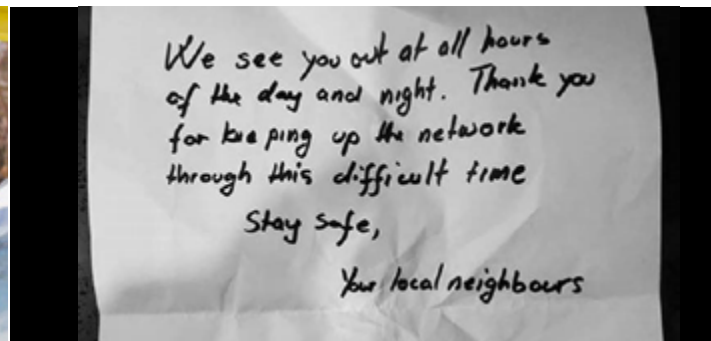 We see you out at all hours
of the day and night. Thank you
for keeping up the network
through this difficult time
Stay safe,
Your local neighbours